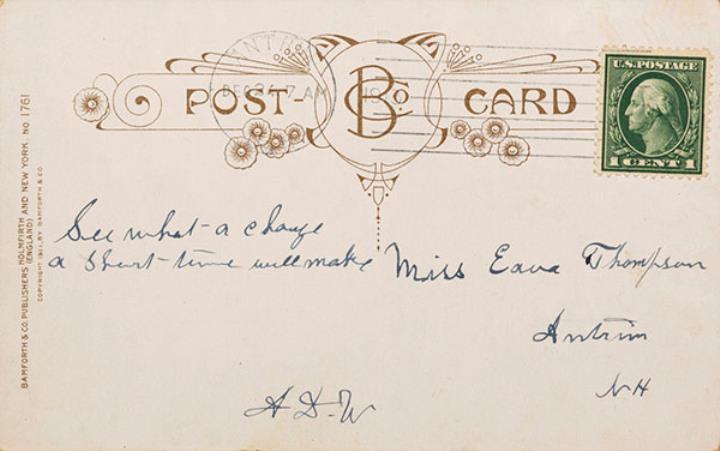 BAMFORTH & CO. PUBLISHERS HOLMFIRTH AND NEW YORK. NO 1761
(ENGLAND)
COPYRIGHT 1911, BY BAMFORTH & CO.
ANTRIM
DEC 24 7 AM
POST- B Co CARD
U.S. POSTAGE
1 CENT 1
See what a change
a short time will make
Miss Eava Thompson
Antrim
NH
A-D-W